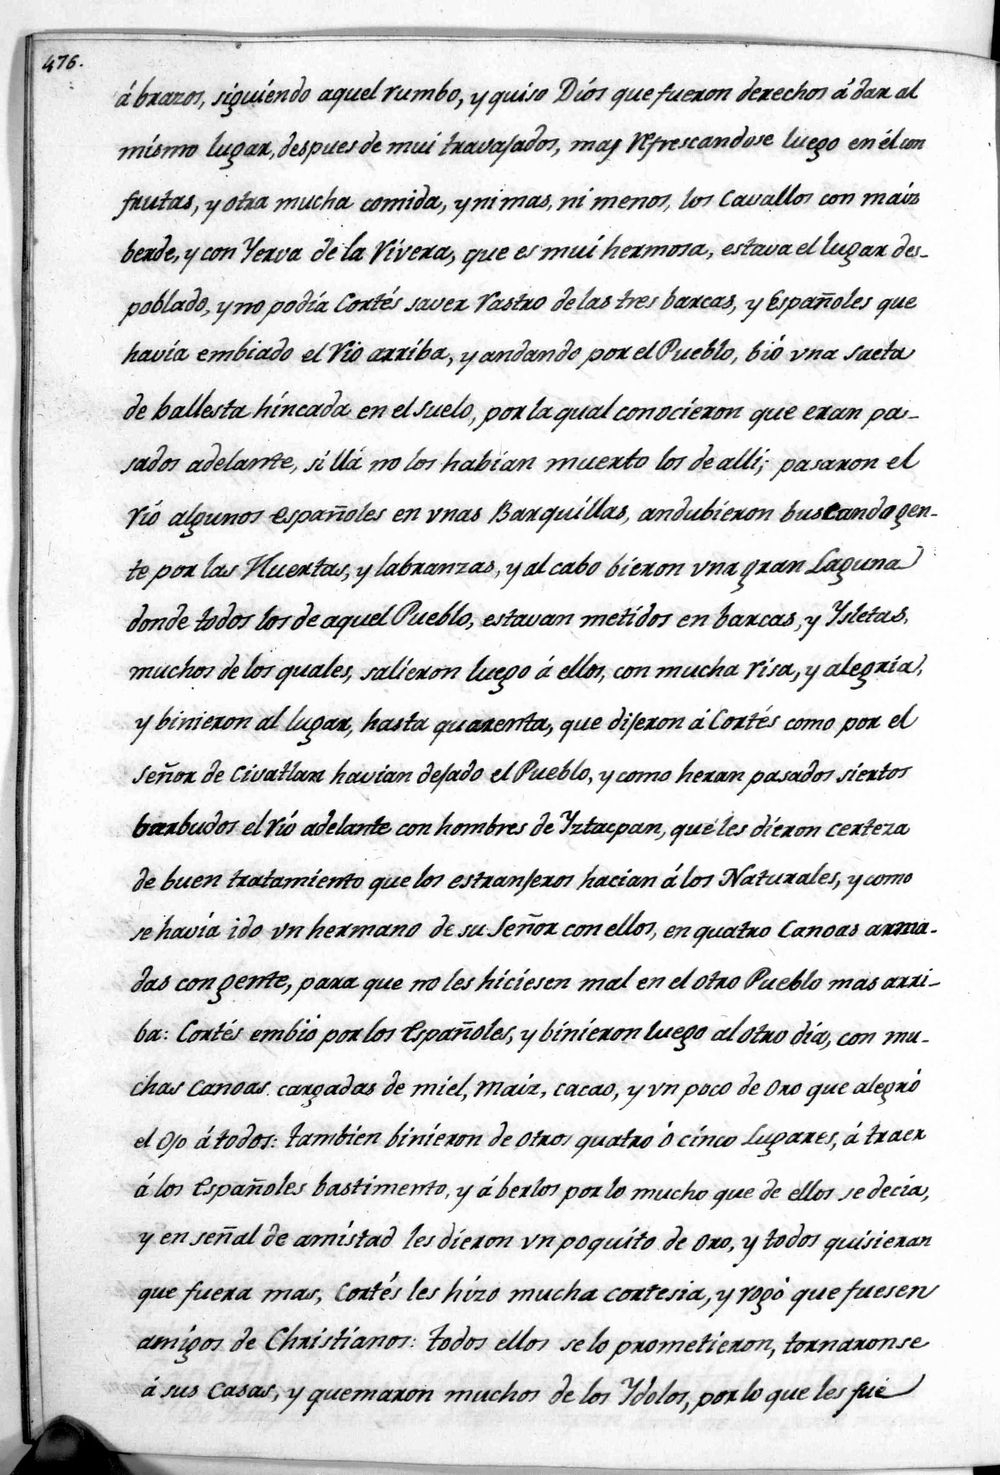 476.
á brazos, siguiendo aquel rumbo, y quiso Dios que fueron derechos á dar al
mismo lugar, despues de mui travajados, mas refrescandose luego en él con
frutas, y otra mucha comida, y ni mas, ni menos, los Cavallos con maiz
berde, y con Yerva de la Rivera, que es mui hermosa, estava el lugar des-
poblado, y no podía Cortés saver rastro de las tres barcas, y Españoles que
havía embiado el Rio arriba, y andando por el Pueblo, bió vna saeta
de ballesta hincada en el suelo, por la qual conocieron que eran pa-
sados adelante, si llá no los habian muerto los de alli; pasaron el
rió algunos españoles en vnas Barquillas, andubieron buscando gen-
te por las Huertas, y labranzas, y al cabo bieron vna gran Laguna
donde todos los de aquel Pueblo, estavan metidos en barcas, y Ysletas,
muchos de los quales, salieron luego á ellos, con mucha risa, y alegria,
y binieron al lugar, hasta quarenta, que dijeron á Cortés como por el
señor de Civatlan havian dejado el Pueblo, y como heran pasados siertos
barbudos el rió adelante con hombres de Yztacpan, que les dieron certeza
de buen tratamiento que los estranjeros hacian á los Naturales, y como
se havia ido vn hermano de su Señor con ellos, en quatro Canoas arma-
das con gente, para que no les hiciesen mal en el otro Pueblo mas arri-
ba: Cortés embió por los españoles, y binieron luego al otro dia, con mu-
chas Canoas cargadas de miel, maiz, cacao, y vn poco de oro que alegró
el ojo á todos: tambien binieron de otros quatro ó cinco Lugares, á traer
á los españoles bastimento, y á berlos por lo mucho que de ellos se decia,
y en señal de amistad les dieron vn poquito de oro, y todos quisieran
que fuera mas, Cortés les hizo mucha cortesia, y rogó que fuesen
amigos de Christianos: todos ellos se lo prometieron, tornaronse
á sus Casas, y quemaron muchos de los Ydolos, por lo que les fue